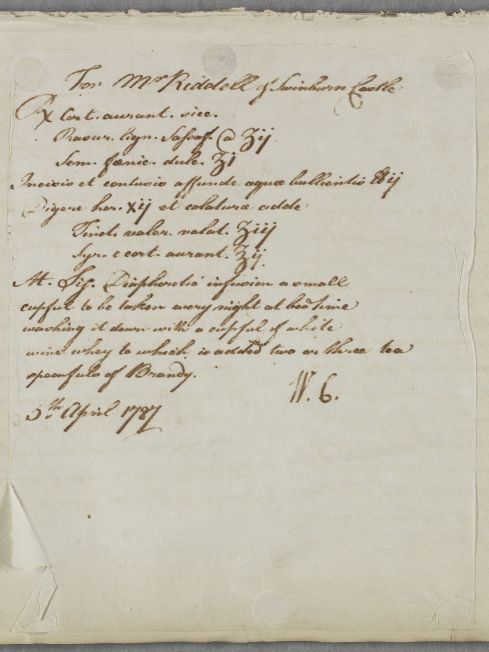 For Mr Riddell of Swinburn Castle
℞ Cort. aurant. sicc.
Rasur. lign. Sassaf. @ ʒij
Sem. fœnic. dulc. ʒi
Incisis et contusis affunde aquæ bullientis ℔ij
Digere hor. xij et colaturæ adde
Tinct. valer. volat. ʒiij
Syr. e cort. aurant. ʒij
M. Sig. Diaphoretic infusion a small
cupful to be taken every night at bedtime
washing it down with a cupful of white
wine whey to which is added two or three tea
spoonfuls of Brandy.
W. C.
5th April 1787